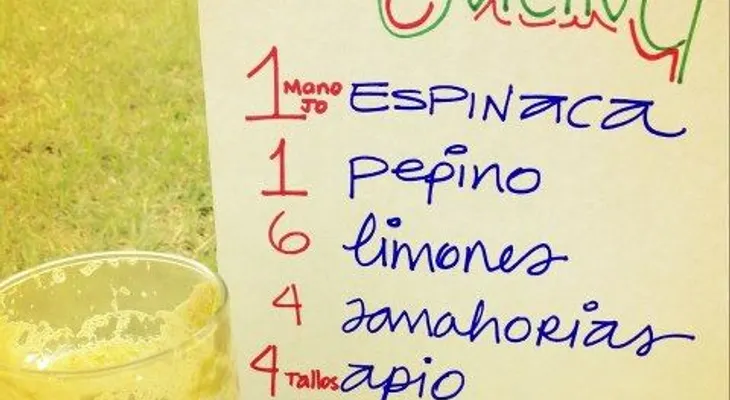 1 Manojo ESPINACA
1 pepino
6 limones
4 zanahorias
4 Tallos apio